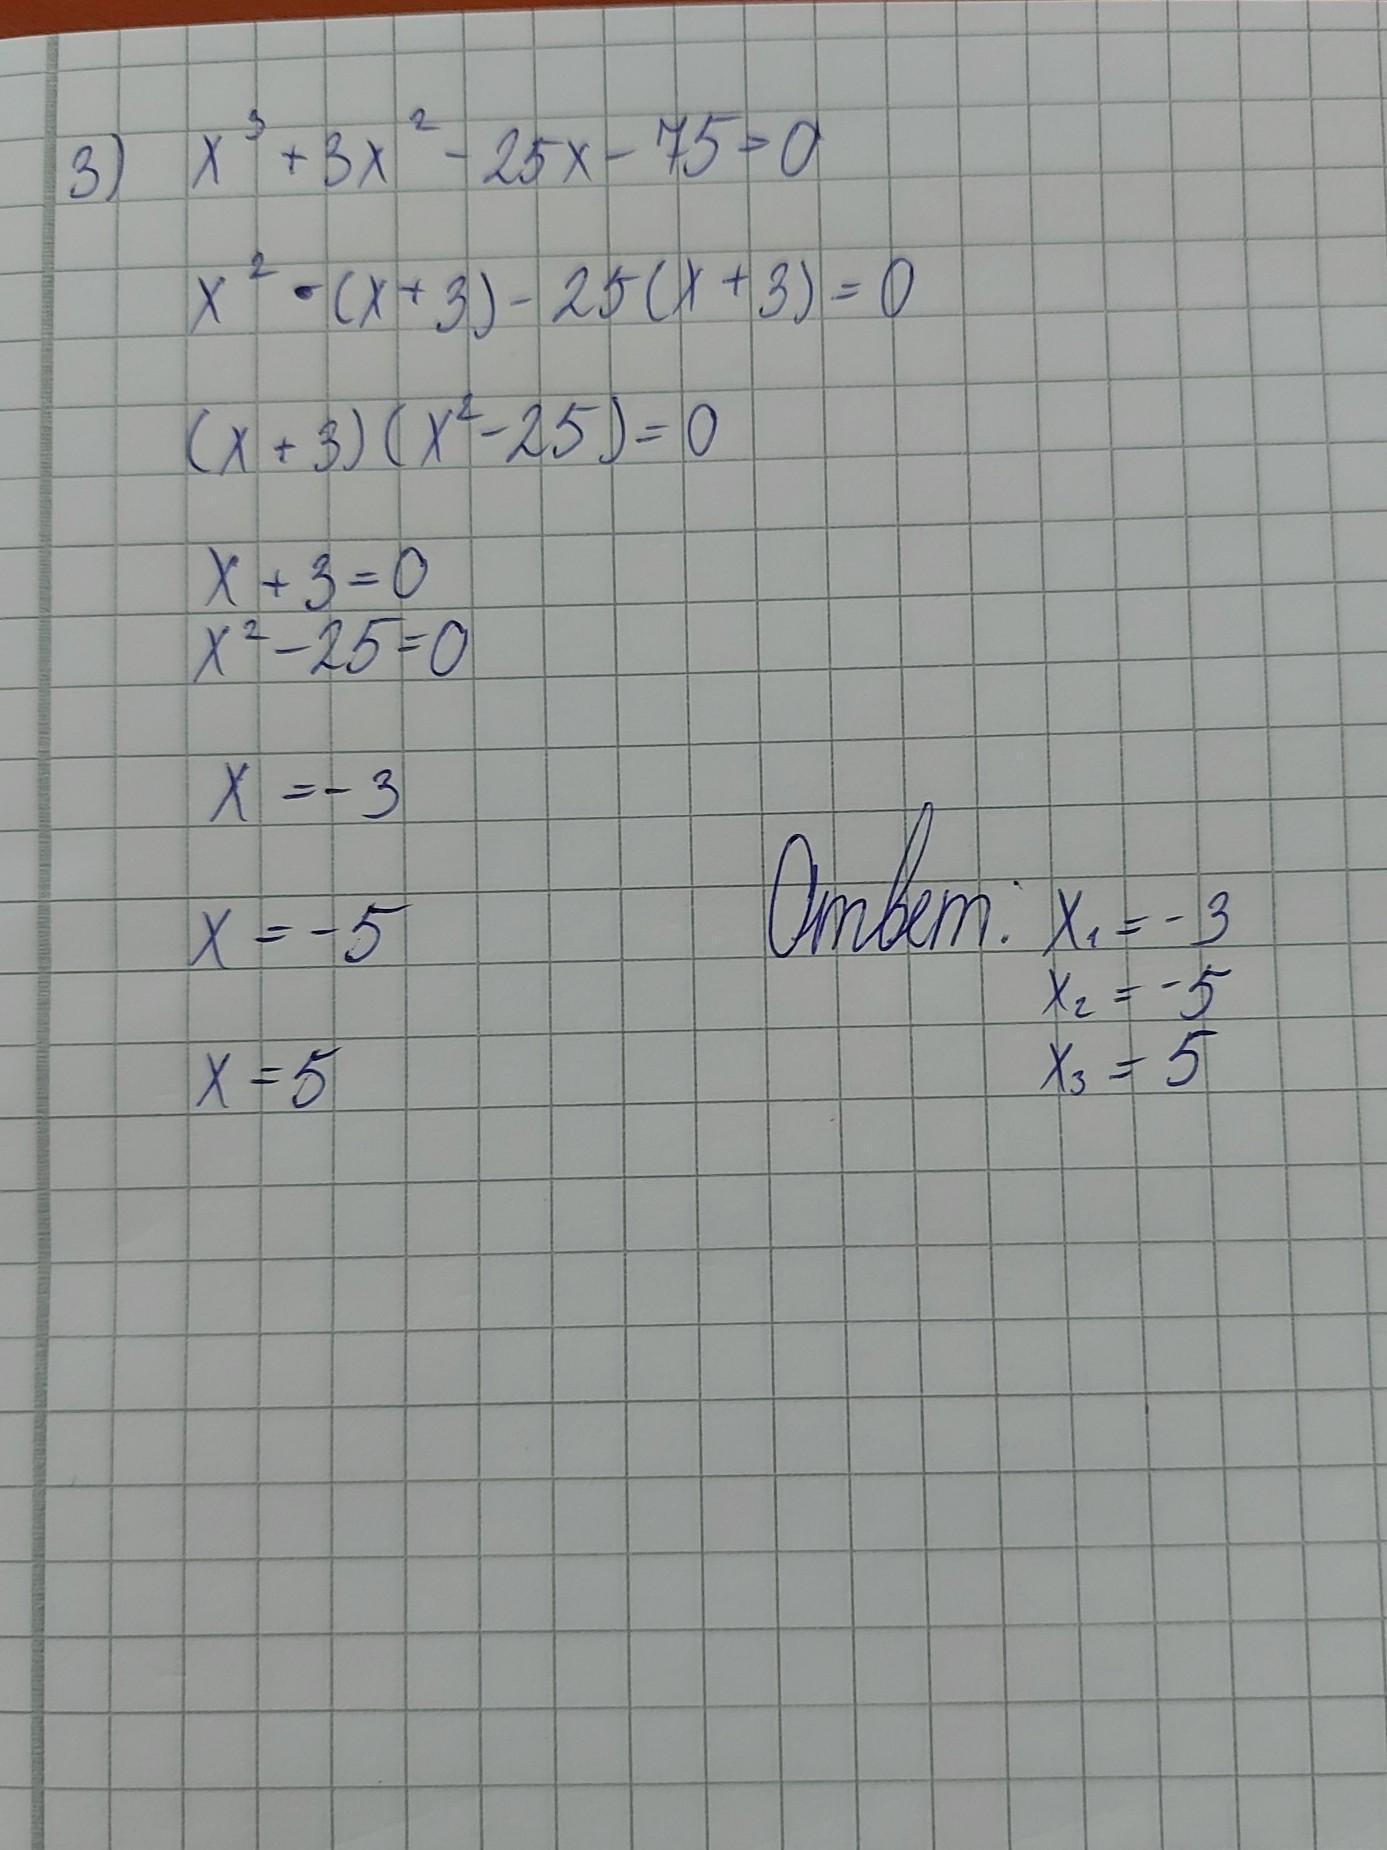 3) x³ + 3x² - 25x - 75 = 0
x² · (x + 3) - 25(x + 3) = 0
(x + 3)(x² - 25) = 0
x + 3 = 0
x² - 25 = 0
x = -3
x = -5
x = 5
Ответ: x₁ = -3
x₂ = -5
x₃ = 5